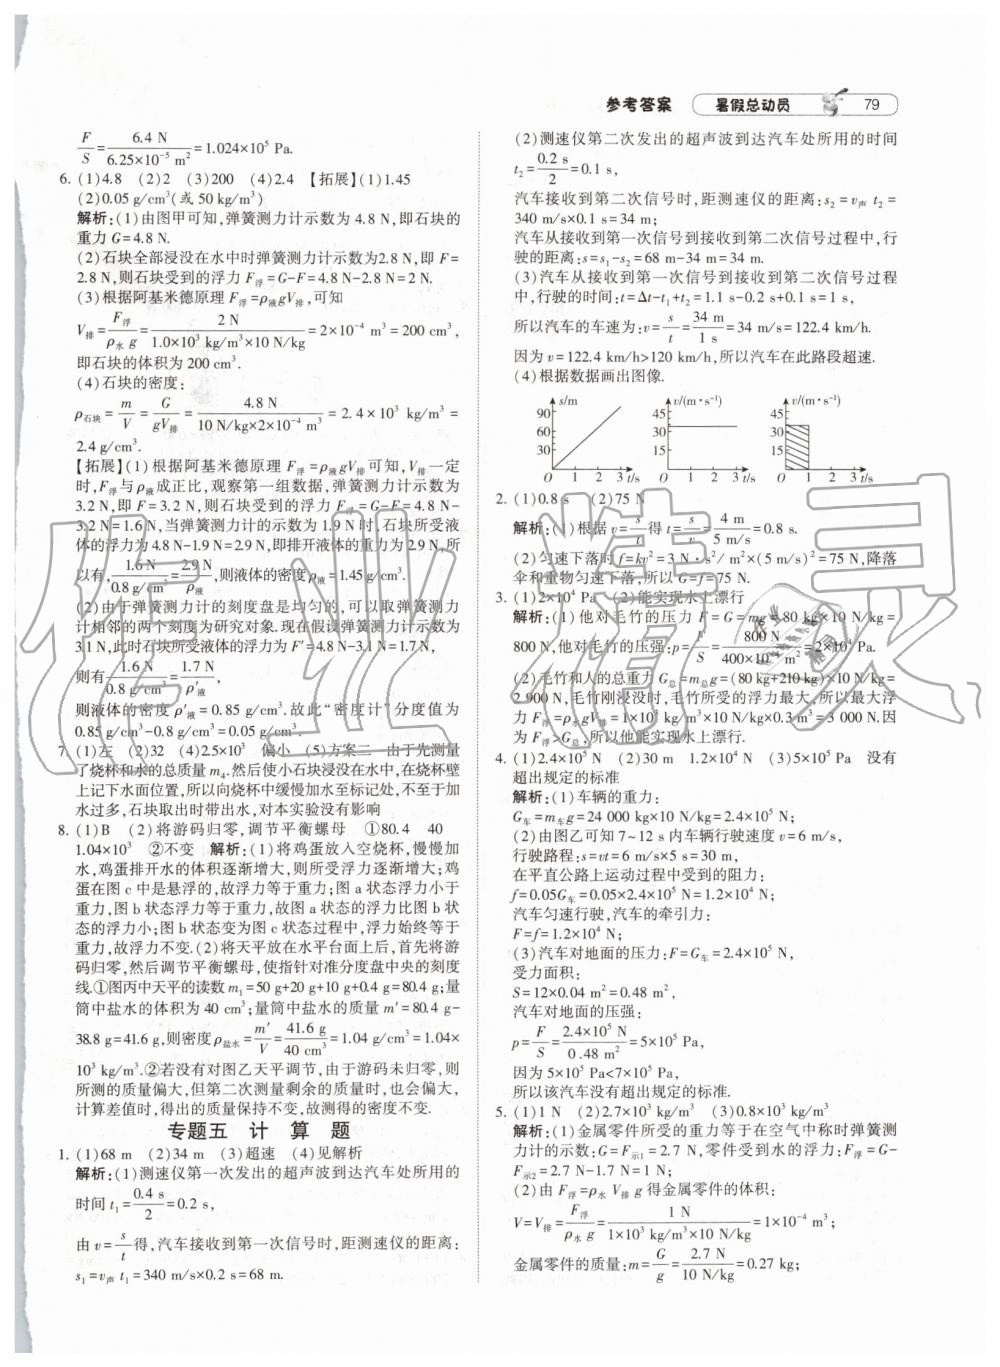 参考答案 暑假总动员 79
F/S=6.4 N/6.25×10⁻⁵ m²=1.024×10⁵ Pa.
6. (1)4.8 (2)2 (3)200 (4)2.4 【拓展】(1)1.45
(2)0.05 g/cm³(或 50 kg/m³)
解析:(1)由图甲可知,弹簧测力计示数为 4.8 N,即石块的
重力 G=4.8 N.
(2)石块全部浸没在水中时弹簧测力计示数为2.8 N,即 F=
2.8 N,则石块受到的浮力 F浮=G-F=4.8 N-2.8 N=2 N.
(3)根据阿基米德原理 F浮=ρ液gV排,可知
V排=F浮/ρ水 g=2 N/1.0×10³ kg/m³×10 N/kg=2×10⁻⁴ m³=200 cm³,
即石块的体积为 200 cm³.
(4)石块的密度:
ρ石块=m/V=G/gV排=4.8 N/10 N/kg×2×10⁻⁴ m³=2.4×10³ kg/m³=
2.4 g/cm³.
【拓展】(1)根据阿基米德原理 F浮=ρ液gV排可知,V排一定
时,F浮与ρ液成正比,观察第一组数据,弹簧测力计示数为
3.2 N,即 F=3.2 N,则石块受到的浮力 F浮=G-F=4.8 N-
3.2 N=1.6 N,当弹簧测力计的示数为 1.9 N时,石块所受液
体的浮力为4.8 N-1.9 N=2.9 N,即排开液体的重力为2.9 N,所
以有,1.6 N/0.8 g/cm³=2.9 N/ρ液,则液体的密度ρ液=1.45 g/cm³.
(2)由于弹簧测力计的刻度盘是均匀的,可以取弹簧测力计
相邻的两个刻度为研究对象.现在假设弹簧测力计示数为
3.1 N,此时石块所受液体的浮力为 F′=4.8 N-3.1 N=1.7 N,
则有1.6 N/0.8 g/cm³=1.7 N/ρ′液,
则液体的密度ρ′液=0.85 g/cm³.故此“密度计”分度值为
0.85 g/cm³-0.8 g/cm³=0.05 g/cm³.
7. (1)左 (2)32 (4)2.5×10³ 偏小 (5)方案二 由于先测量
了烧杯和水的总质量 m₄.然后使小石块浸没在水中,在烧杯壁
上记下水面位置,所以向烧杯中缓慢加水至标记处,不至于加
水过多,石块取出时带出水,对本实验没有影响
8. (1)B (2)将游码归零,调节平衡螺母 ①80.4 40
1.04×10³ ②不变 解析:(1)将鸡蛋放入空烧杯,慢慢加
水,鸡蛋排开水的体积逐渐增大,则所受浮力逐渐增大;鸡
蛋在图 c 中是悬浮的,故浮力等于重力;图 a 状态浮力小于
重力,图 b 状态浮力等于重力,故图 a 状态的浮力比图 b 状
态的浮力小;图 b 状态变为图 c 状态过程中,浮力始终等于
重力,故浮力不变.(2)将天平放在水平台面上后,首先将游
码归零,然后调节平衡螺母,使指针对准分度盘中央的刻度
线.①图丙中天平的读数 m₁=50 g+20 g+10 g+0.4 g=80.4 g;量
筒中盐水的体积为 40 cm³;量筒中盐水的质量 m′=80.4 g-
38.8 g=41.6 g,则密度 ρ盐水=m′/V=41.6 g/40 cm³=1.04 g/cm³=1.04×
10³ kg/m³.②若没有对图乙天平调节,由于游码未归零,则
所测的质量偏大,但第二次测量剩余的质量时,也会偏大,
计算差值时,得出的质量保持不变,故测得的密度不变.
专题五 计 算 题
1. (1)68 m (2)34 m (3)超速 (4)见解析
解析:(1)测速仪第一次发出的超声波到达汽车处所用的
时间 t₁=0.4 s/2=0.2 s,
由 v=s/t得,汽车接收到第一次信号时,距测速仪的距离:
s₁=v声 t₁=340 m/s×0.2 s=68 m.
(2)测速仪第二次发出的超声波到达汽车处所用的时间
t₂=0.2 s/2=0.1 s,
汽车接收到第二次信号时,距测速仪的距离:s₂=v声 t₂=
340 m/s×0.1 s=34 m;
汽车从接收到第一次信号到接收到第二次信号过程中,行
驶的距离:s=s₁-s₂=68 m-34 m=34 m.
(3)汽车从接收到第一次信号到接收到第二次信号过程
中,行驶的时间:t=Δt-t₁+t₂=1.1 s-0.2 s+0.1 s=1 s,
所以汽车的车速为:v=s/t=34 m/1 s=34 m/s=122.4 km/h.
因为 v=122.4 km/h>120 km/h,所以汽车在此路段超速.
(4)根据数据画出图像.
s/m 90 60 30 0 1 2 3 t/s
v/(m·s⁻¹) 45 30 15 0 1 2 3 t/s
v/(m·s⁻¹) 45 30 15 0 1 2 3 t/s
2. (1)0.8 s (2)75 N
解析:(1)根据 v=s/t得 t=s/v=4 m/5 m/s=0.8 s.
(2)匀速下落时 f=kv²=3 N·s²/m²×(5 m/s)²=75 N,降落
伞和重物匀速下落,所以 G=f=75 N.
3. (1)2×10⁴ Pa (2)能实现水上漂行
解析:(1)他对毛竹的压力 F=G=mg=80 kg×10 N/kg=
800 N,他对毛竹的压强:p=F/S=800 N/400×10⁻⁴ m²=2×10⁴ Pa.
(2)毛竹和人的总重力 G总=m总g=(80 kg+210 kg)×10 N/kg=
2 900 N,毛竹刚浸没时,毛竹所受的浮力最大,所以最大浮
力 F浮=ρ水gV排=1×10³ kg/m³×10 N/kg×0.3 m³=3 000 N.因
为 F浮>G总,所以他能实现水上漂行.
4. (1)2.4×10⁵ N (2)30 m 1.2×10⁴ N (3)5×10⁵ Pa 没有
超出规定的标准
解析:(1)车辆的重力:
G车=m车g=24 000 kg×10 N/kg=2.4×10⁵ N;
(2)由图乙可知 7~12 s 内车辆行驶速度 v=6 m/s,
行驶路程:s=vt=6 m/s×5 s=30 m,
在平直公路上运动过程中受到的阻力:
f=0.05G车=0.05×2.4×10⁵ N=1.2×10⁴ N;
汽车匀速行驶,汽车的牵引力:
F=f=1.2×10⁴ N;
(3)汽车对地面的压力:F=G车=2.4×10⁵ N,
受力面积:
S=12×0.04 m²=0.48 m²,
汽车对地面的压强:
p=F/S=2.4×10⁵ N/0.48 m²=5×10⁵ Pa,
因为 5×10⁵ Pa<7×10⁵ Pa,
所以该汽车没有超出规定的标准.
5. (1)1 N (2)2.7×10³ kg/m³ (3)0.8×10³ kg/m³
解析:(1)金属零件所受的重力等于在空气中称时弹簧测
力计的示数:G=F示1=2.7 N,零件受到水的浮力:F浮=G-
F示2=2.7 N-1.7 N=1 N;
(2)由 F浮=ρ水 V排 g 得金属零件的体积:
V=V排=F浮/ρ水 g=1 N/1×10³ kg/m³×10 N/kg=1×10⁻⁴ m³;
金属零件的质量:m=G/g=2.7 N/10 N/kg=0.27 kg;
作业精灵